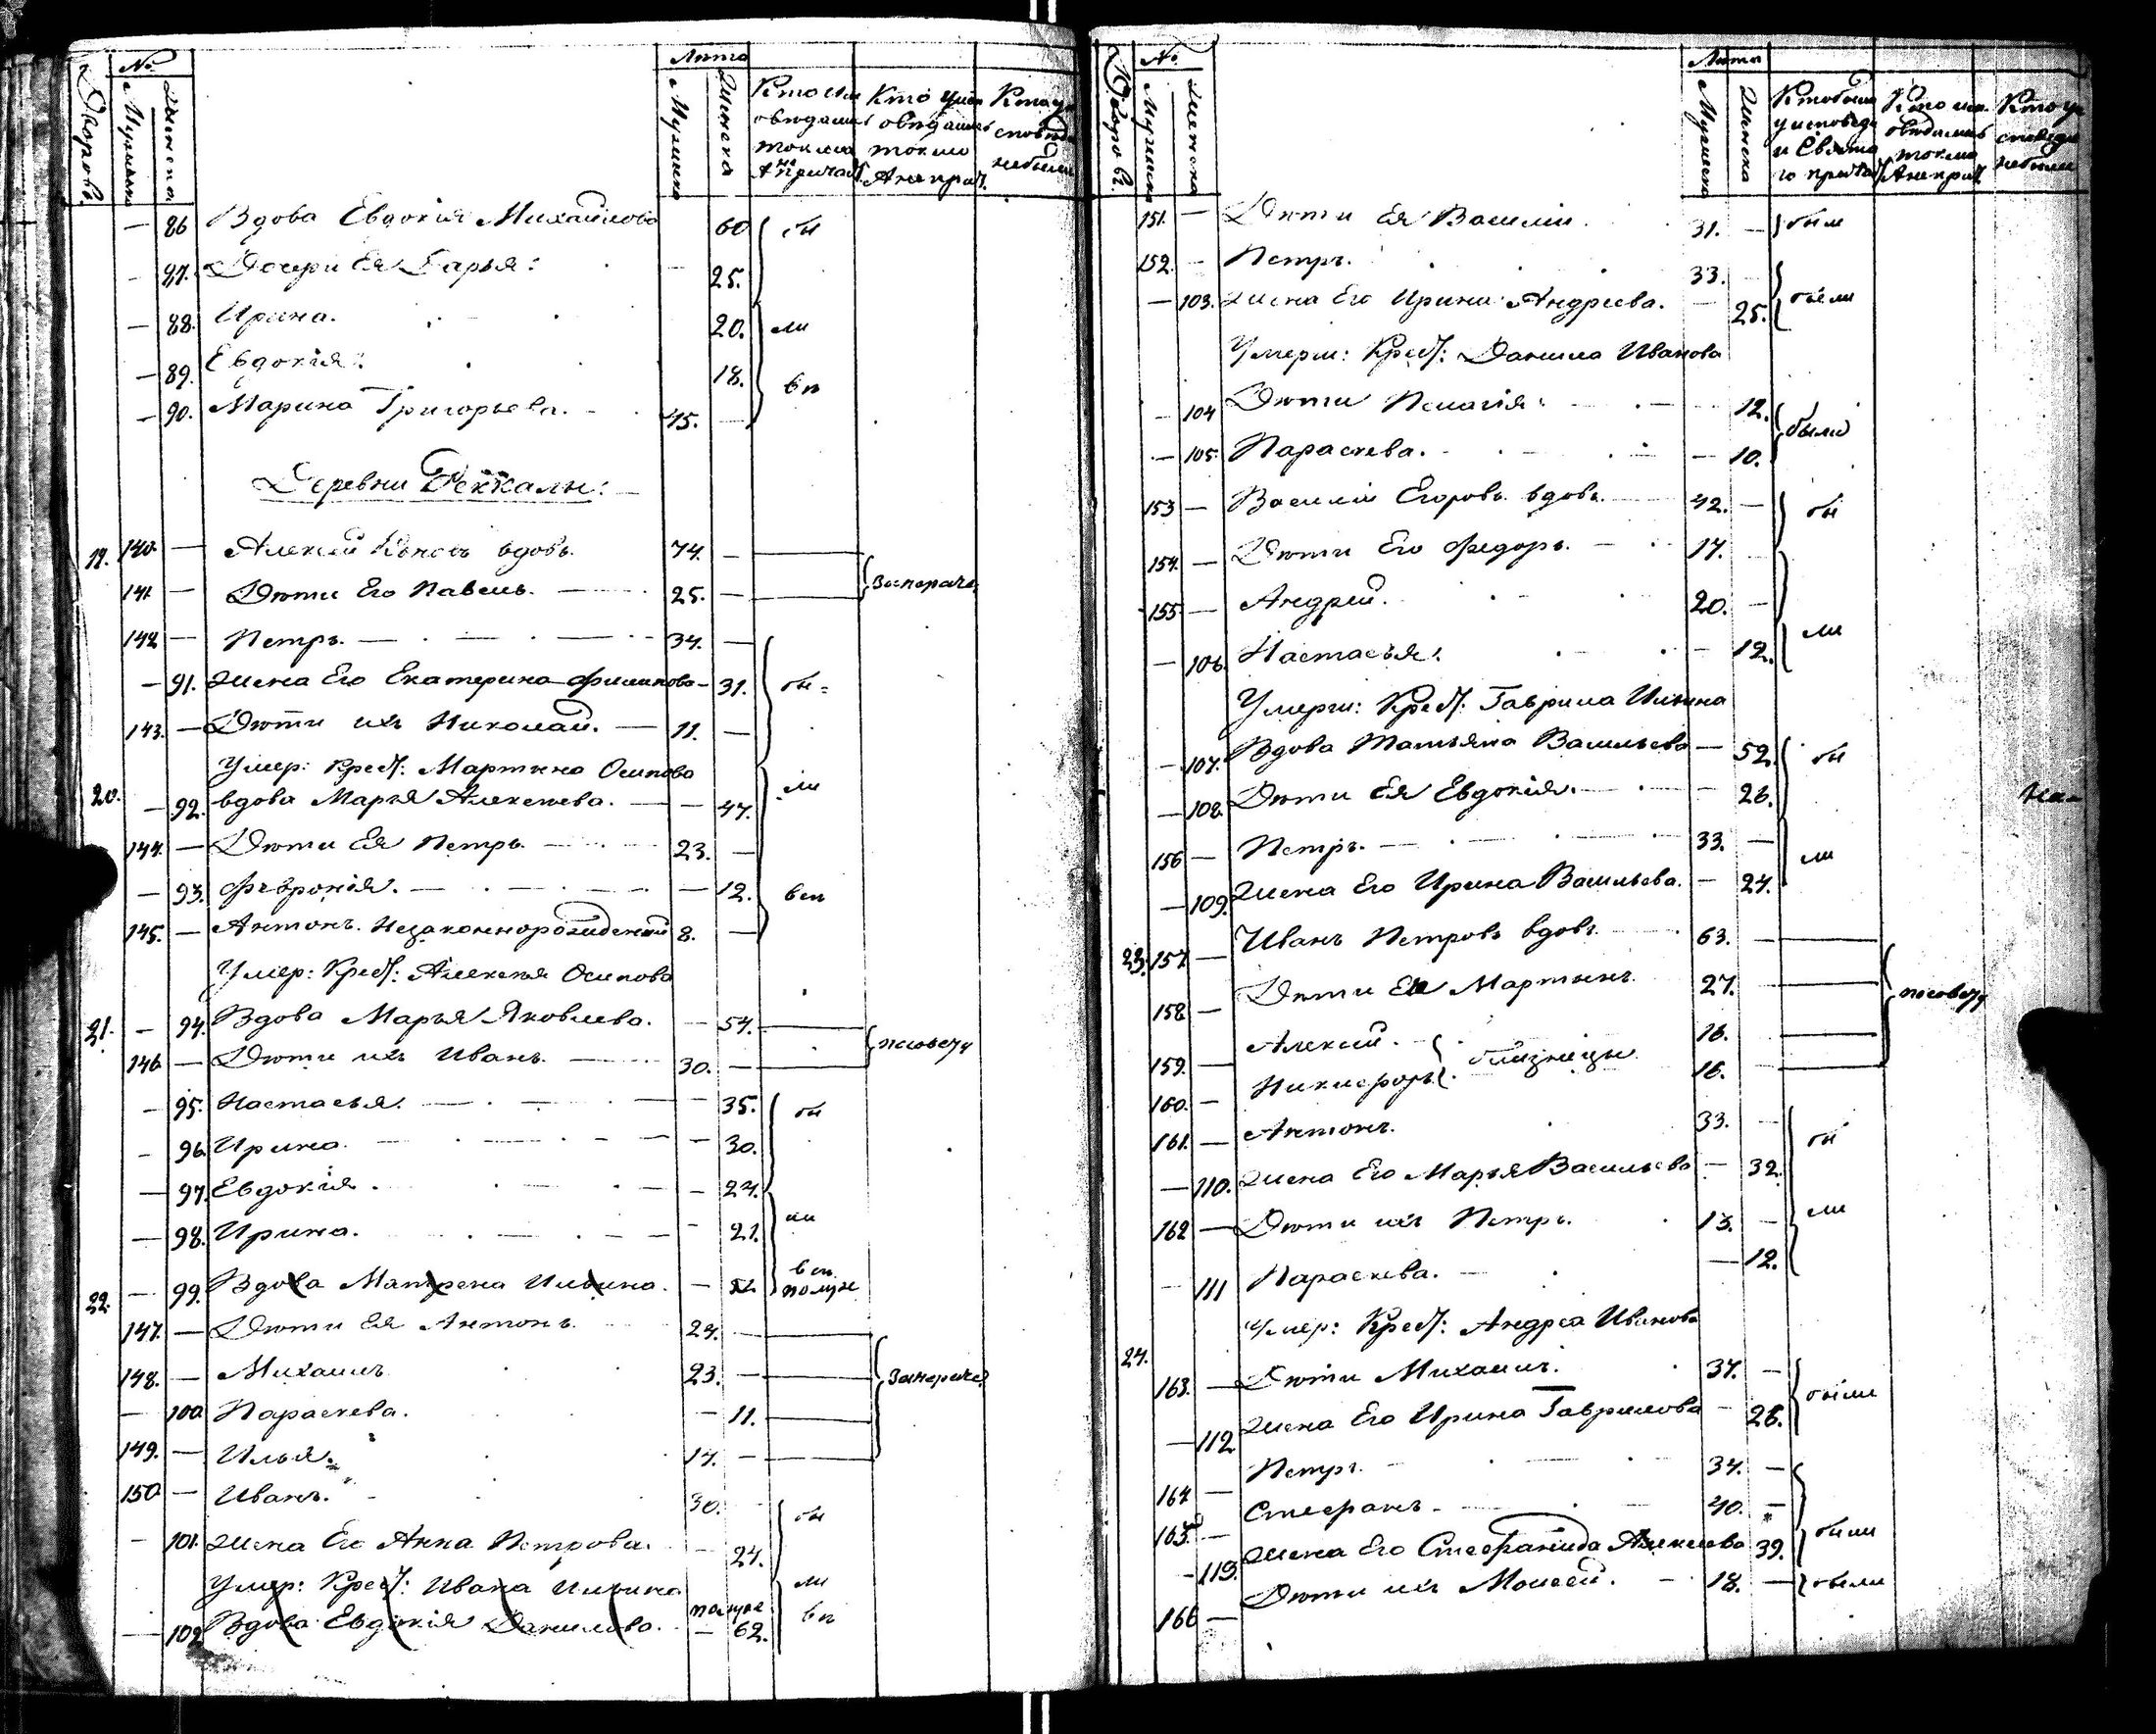 Дворовъ
№
Мужеска
Женска
Лѣта
Мужеска
Женска
Кто исп
овѣдались
токмо
а не причаст.
Кто
овѣдались
токмо
А не прич.
Кто у
исповѣди
не были
— 86 Вдова Евдокія Михайлова 60 бы
— 87. Дочери Ея Дарья: — 25.
— 88. Ирина. 20. ли
— 89. Евдокія: 18.
— 90. Марина Григорьева. 45. — вп
Деревни Реккалы:
19. 140. — Алексѣй вдовъ. 74. —
141. — Дѣти Его Павелъ. 25. —
142 — Петръ. 34. —
— 91. Жена Его Екатерина Филипова — 31. бы=
143. — Дѣти ихъ Николай. — 11. —
Умер: Крест: Мартына Осипова
20. — 92. вдова Марья Алексѣева. — 47. ли
144. — Дѣти Ея Петръ 23. —
— 93. Февронія. — 12. вси
145. — Антонъ. Незаконнорожденный 8. —
Умер: Крест: Алексѣя Осипова
21. — 94. Вдова Марья Яковлева. — 54.
146 — Дѣти ихъ Иванъ. 30. —
— 95. Настасья. — 35. бы
— 96. Ирина. — 30.
— 97. Евдокія. — 24.
— 98. Ирина. — 21. ли
22. — 99. Вдова Матрена Ильина. —
147. — Дѣти Ея Антонъ 24. —
148. — Михаилъ 23. —
— 100 Параскева. — 11.
149. — Илья. 14. —
150 — Иванъ. 30.
— 101. Жена Его Анна Петрова. — 24. бы
Умер: Крест: Ивана Ильина ли
— 102 Вдова Евдокія Данилова. — 62. вп
Дворовъ
№
Мужеска
Женска
Лѣта
Мужеска
Женска
Кто были
у исповѣди
и Свята
го причас
Кто исп
овѣдались
токмо
А не прич
Кто у
исповѣди
не были
151. — Дѣти Ея Василій. 31. — были
152. — Петръ. 33. —
— 103. Жена Его Ирина Андреева. — 25. были
Умерш: Крест: Данила Иванова
— 104 Дѣти Пелагія: 12. были
— 105. Параскева. — 10.
153 — Василій Егоровъ вдовъ. 42. — бы
154. — Дѣти Его Федоръ. 17.
155 — Андрей. 20. —
— 106. Настасья. — 12. ли
Умерш: Крест: Гаврила Ильина
— 107. Вдова Татьяна Васильева — 52. бы
— 108. Дѣти Ея Евдокія. — 26.
156 — Петръ. 33. — ли
— 109. Жена Его Ирина Васильева. — 24.
23. 157. — Иванъ Петровъ вдовъ. 63. —
158. — Дѣти Ея Мартынъ. 27. —
159. — Алексѣй. близнецы 16.
160. — Никифоръ 16.
161. — Антонъ. 33. — бы
— 110. Жена Его Марья Васильева — 32.
162 — Дѣти ихъ Петръ. 13. — ли
— 111 Параскева. — 12.
Умер: Крест: Андрея Иванова
24. 163. — Дѣти Михаилъ. 37. — были
— 112. Жена Его Ирина Гаврилова — 26.
164 — Петръ. 34. —
165 — Стефанъ 40. —
— 113. Жена Его Стефанида Алексѣева 39. были
166 — Дѣти ихъ Моисей. 18. — были